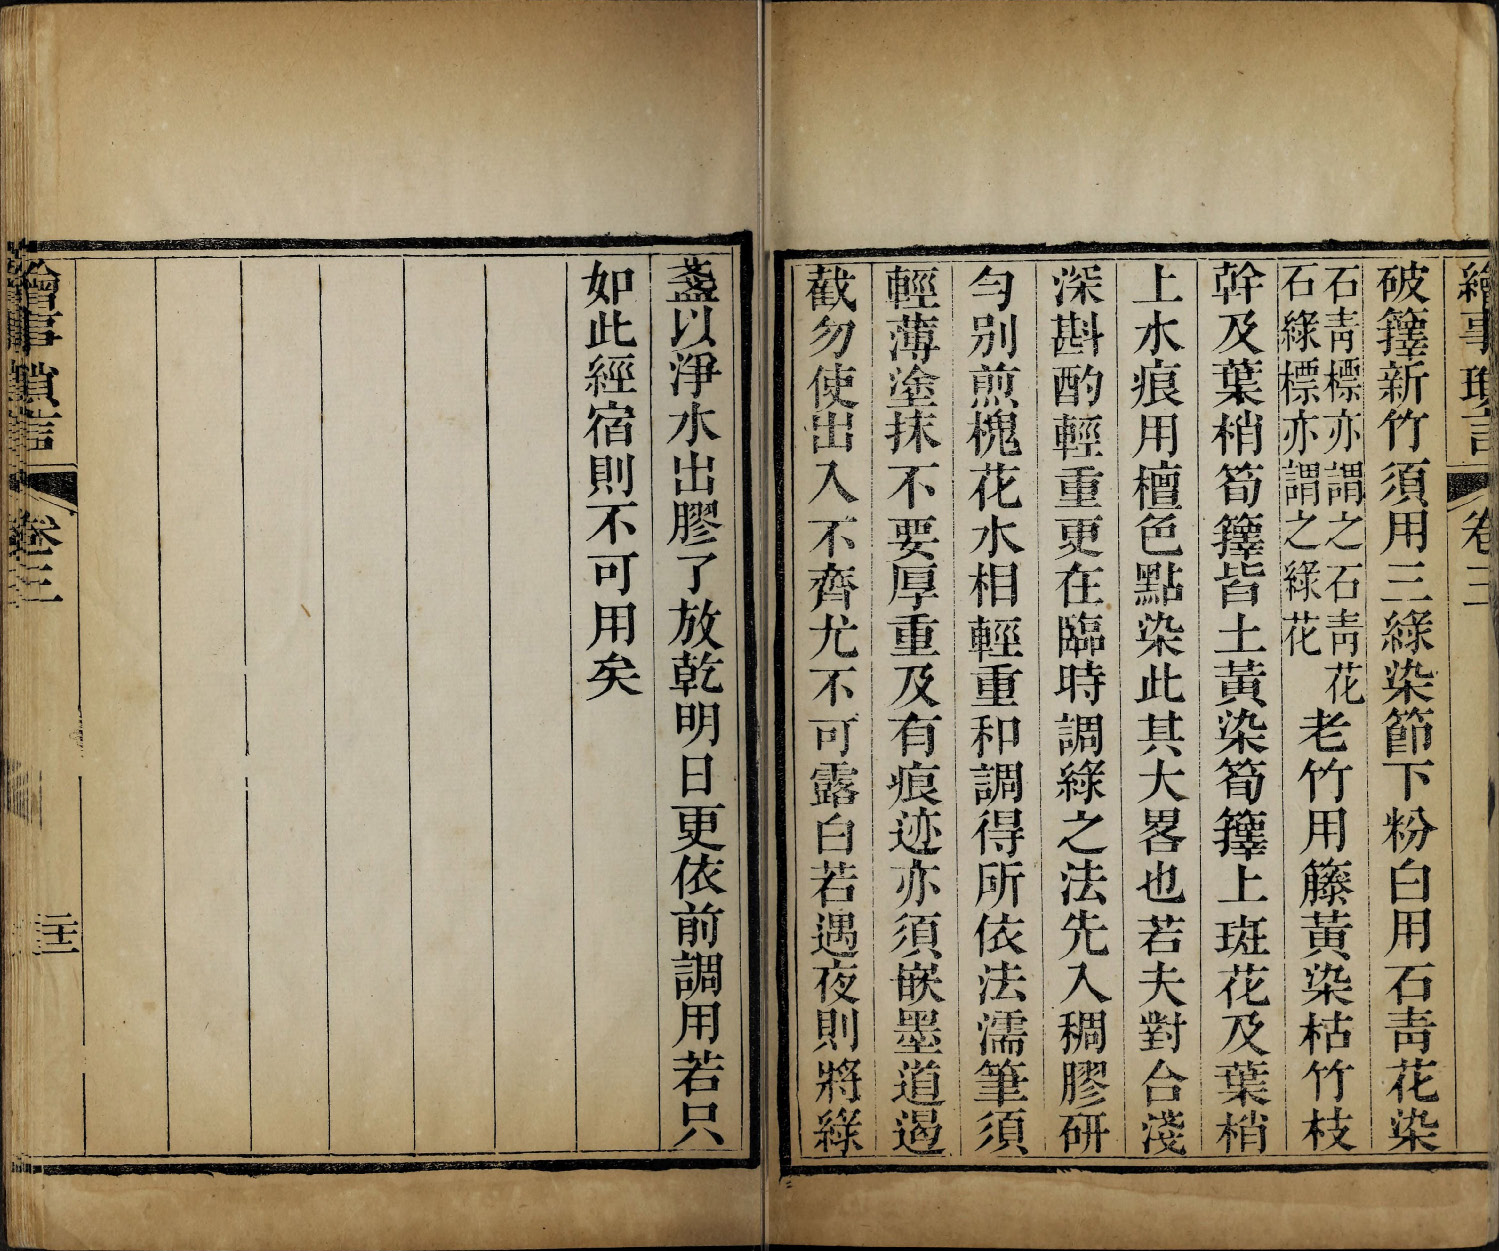 繪事瑣言 卷三
破籜新竹須用三綠染節下粉白用石靑花染
石靑標亦謂之石靑花
石綠標亦謂之綠花
老竹用籐黃染枯竹枝
幹及葉梢筍籜皆土黃染筍籜上斑花及葉梢
上水痕用檀色點染此其大畧也若夫對合淺
深斟酌輕重更在臨時調綠之法先入稠膠硏
勻別煎槐花水相輕重和調得所依法濡筆須
輕薄塗抹不要厚重及有痕迹亦須嵌墨道遏
截勿使出入不齊尤不可露白若遇夜則將綠
盞以淨水出膠了放乾明日更依前調用若只
如此經宿則不可用矣
繪事瑣言 卷三